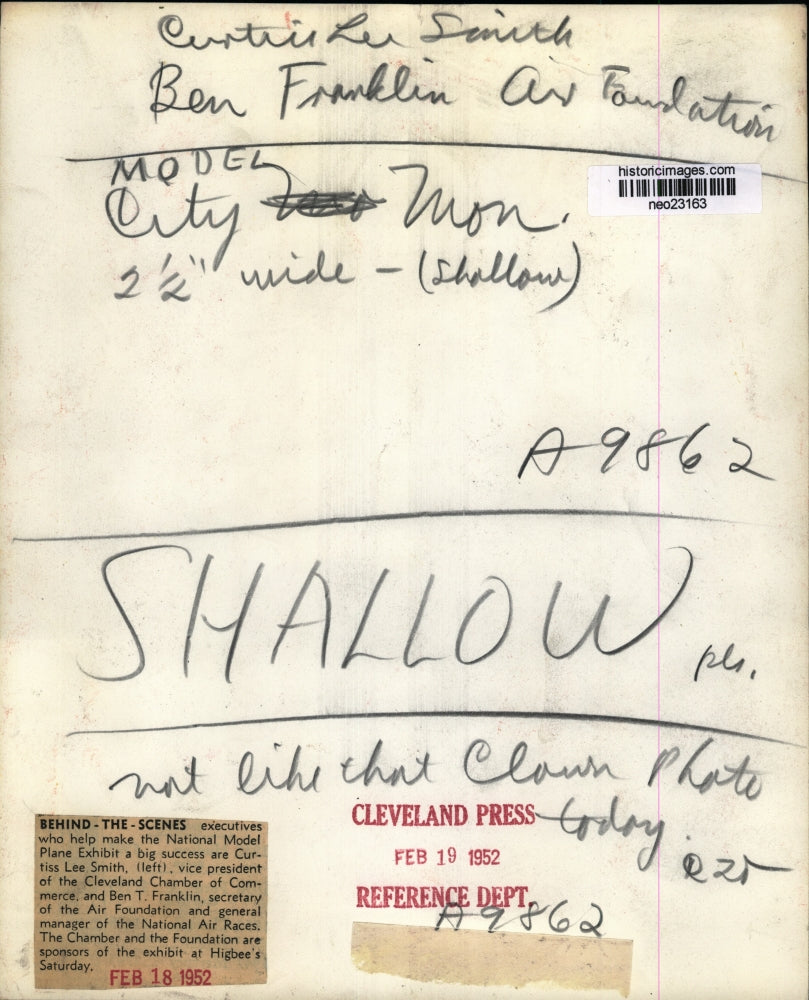 Curtiss Lee Smith
Ben Franklin Air Foundation
MODEL
City Mon.
historicimages.com
neo23163
2 1/2" wide - (Shallow)
A9862
SHALLOW pls.
not like that Clown Photo
today.
BEHIND-THE-SCENES executives
who help make the National Model
Plane Exhibit a big success are Cur-
tiss Lee Smith, (left), vice president
of the Cleveland Chamber of Com-
merce, and Ben T. Franklin, secretary
of the Air Foundation and general
manager of the National Air Races.
The Chamber and the Foundation are
sponsors of the exhibit at Higbee's
Saturday.
FEB 18 1952
CLEVELAND PRESS
FEB 19 1952
REFERENCE DEPT.
A9862